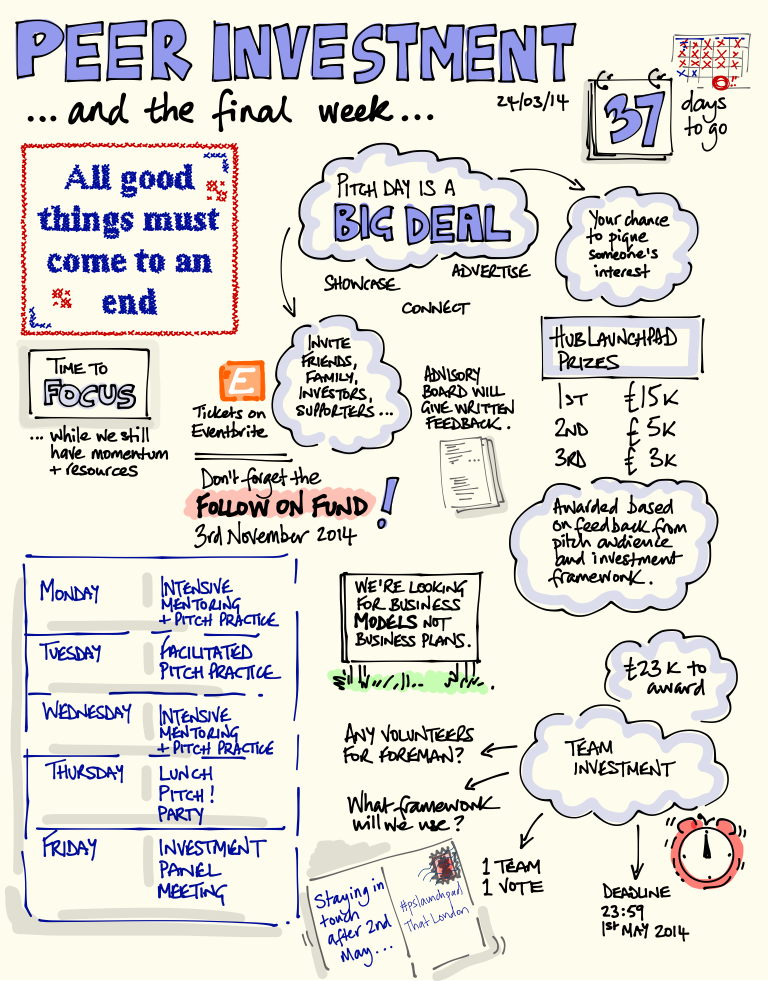 PEER INVESTMENT
...and the final week...
24/03/14
37
days
to go
All good
things must
come to an
end
PITCH DAY IS A
BIG DEAL
SHOWCASE
ADVERTISE
CONNECT
Your chance
to pique
someone's
interest
TIME TO
FOCUS
... while we still
have momentum
+ resources
E
Tickets on
Eventbrite
INVITE
FRIENDS,
FAMILY,
INVESTORS,
SUPPORTERS...
ADVISORY
BOARD WILL
GIVE WRITTEN
FEEDBACK.
HUB LAUNCHPAD
PRIZES
1ST £15K
2ND £5K
3RD £3K
Awarded based
on feedback from
pitch audience
and investment
framework.
Don't forget the
FOLLOW ON FUND!
3rd November 2014
MONDAY
INTENSIVE
MENTORING
+ PITCH PRACTICE
TUESDAY
FACILITATED
PITCH PRACTICE
WEDNESDAY
INTENSIVE
MENTORING
+ PITCH PRACTICE
THURSDAY
LUNCH
PITCH!
PARTY
FRIDAY
INVESTMENT
PANEL
MEETING
WE'RE LOOKING
FOR BUSINESS
MODELS NOT
BUSINESS PLANS.
£23K to
award
TEAM
INVESTMENT
ANY VOLUNTEERS
FOR FOREMAN?
What framework
will we use?
1 TEAM
1 VOTE
DEADLINE
23:59
1st MAY 2014
Staying in
touch
after 2nd
May...
#pslaunchpad
That London